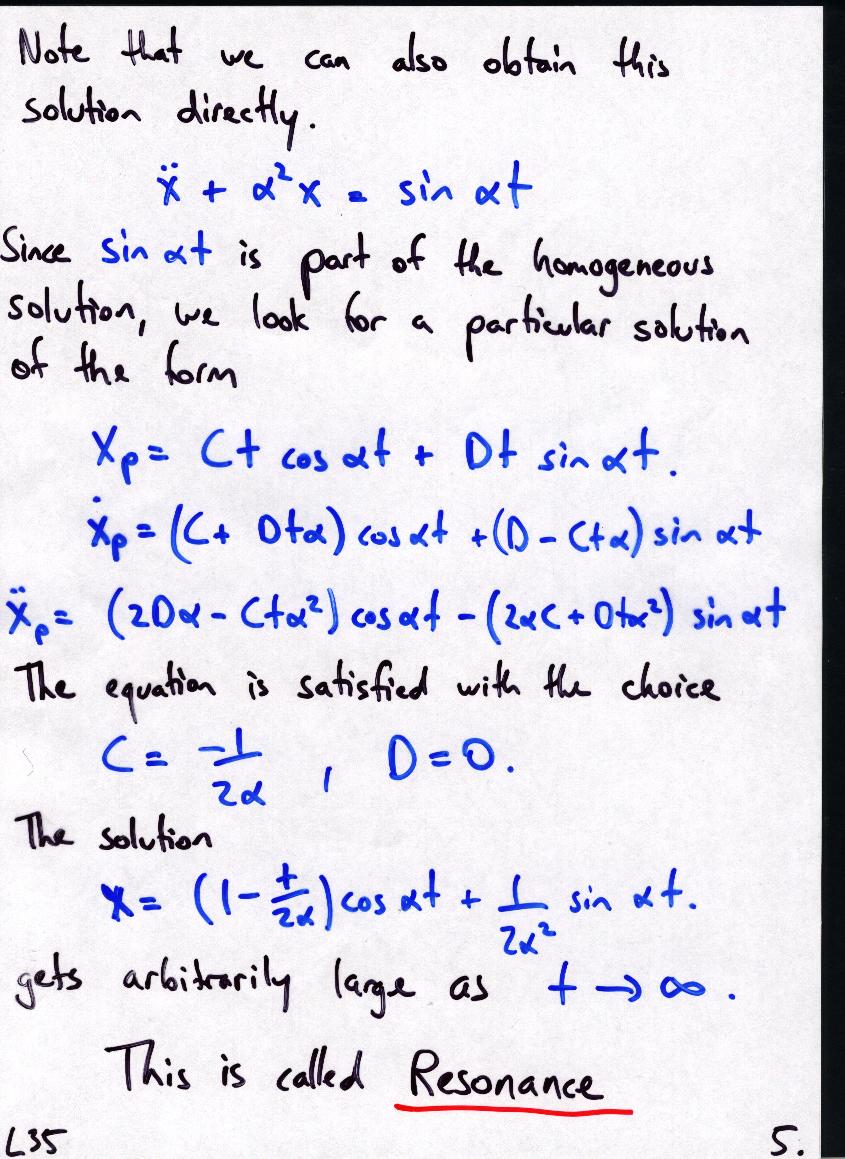 Note that we can also obtain this
solution directly.
ẍ + α²x = sin αt
Since sin αt is part of the homogeneous
solution, we look for a particular solution
of the form
xₚ = Ct cos αt + Dt sin αt.
ẋₚ = (C + Dtα) cos αt + (D - Ctα) sin αt
ẍₚ = (2Dα - Ctα²) cos αt - (2αC + Dtα²) sin αt
The equation is satisfied with the choice
C = -1/2α , D = 0.
The solution
x = (1 - t/2α) cos αt + 1/2α² sin αt.
gets arbitrarily large as t → ∞.
This is called Resonance
L35 5.